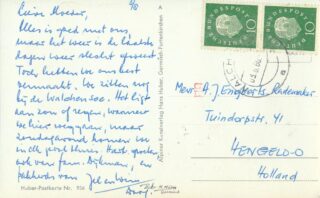 Lieve Moeder, 6/8
Alles is goed met ons
maar het weer is de laatste
dagen weer slecht geweest.
Toch hebben we ons best
vermaakt. We zitten nog
bij de Walchensee. Het ligt
aan zon of regen, wanneer
we hier weggaan, maar
zondagavond komen we
in elk geval thuis. Hartegroeten
ook van fam. Dijkman, en
Huber-Postkarte Nr. 936
Alpiner Kunstverlag Hans Huber, Garmisch-Partenkirchen
DEUTSCHE BUNDESPOST
10
DEUTSCHE BUNDESPOST
10
Mevr. A. Jongkerts-Rademaker
Tuindorpstr. 41
HENGELO-O
Holland